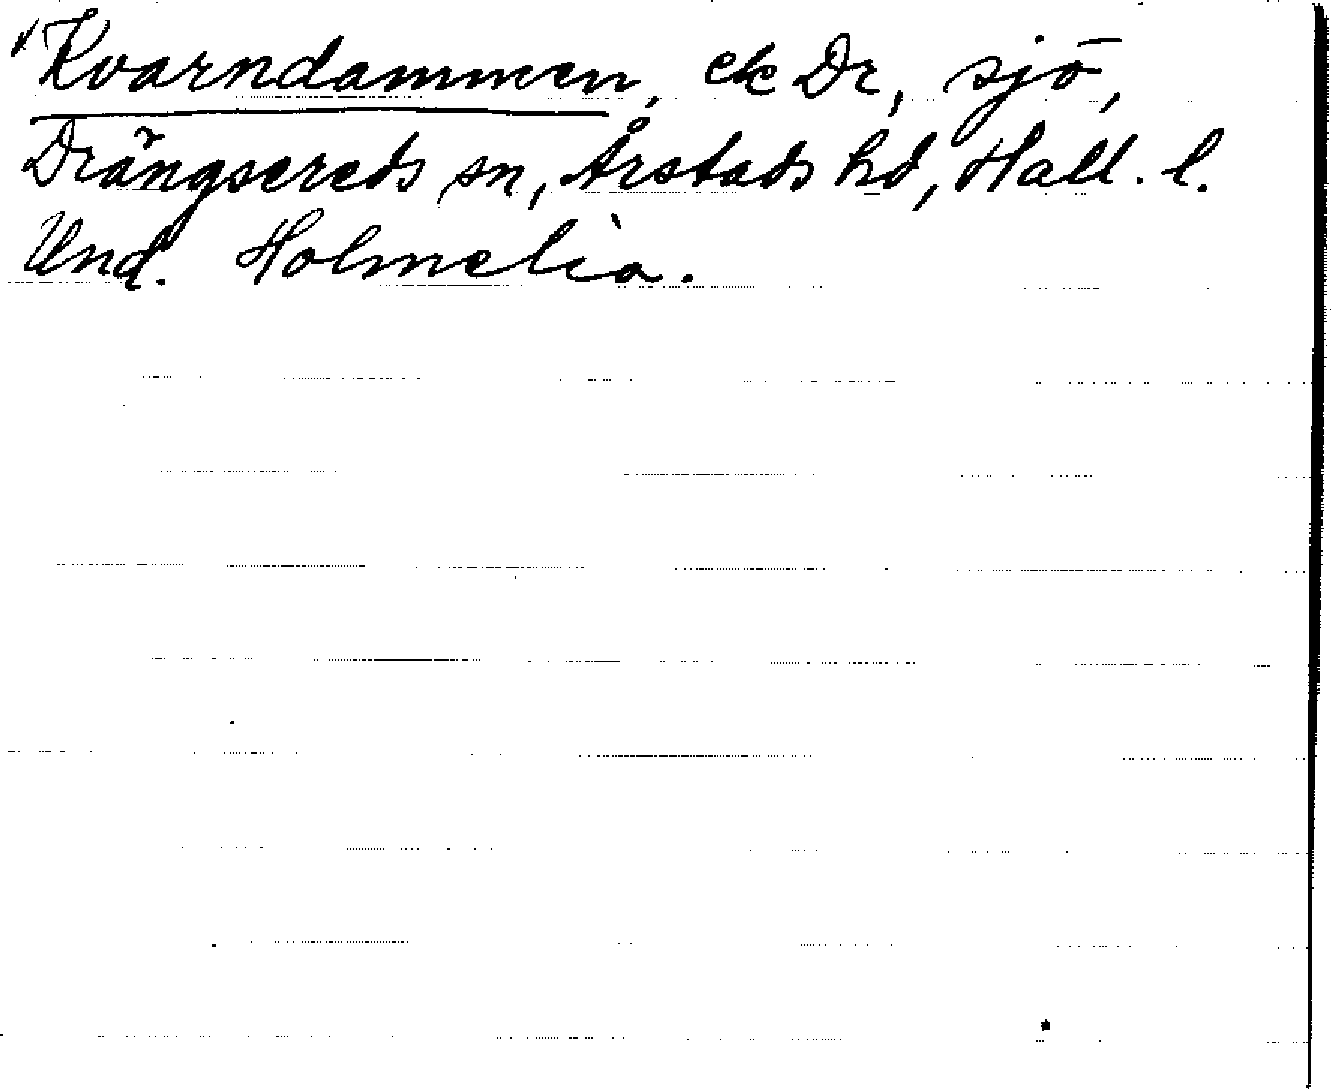 "Kvarndammen, ek Dr, sjö,
Drängsereds sn, Årstads hd, Hall. l.
Und. Holmelia.